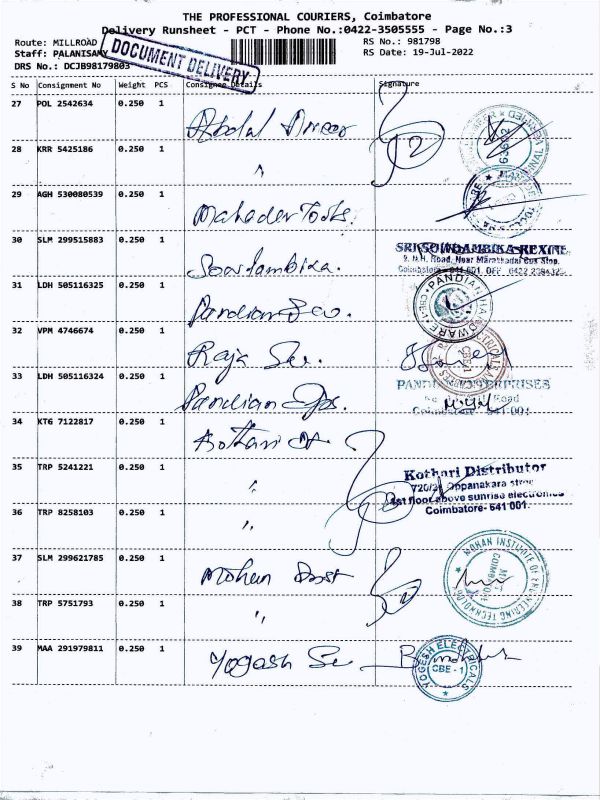 THE PROFESSIONAL COURIERS, Coimbatore
Delivery Runsheet - PCT - Phone No.:0422-3505555 - Page No.:3
Route: MILLROAD RS No.: 981798
Staff: PALANISAMY RS Date: 19-Jul-2022
DRS No.: DCJB98179803
DOCUMENT DELIVERY
S No Consignment No Weight PCS Consignee Details Signature
27 POL 2542634 0.250 1
28 KRR 5425186 0.250 1 "
29 AGH 530080539 0.250 1 Mahader Tools.
30 SLM 299515883 0.250 1 Soodambika.
SRI SOWDAMBIKA REXINE
Coimbatore - 641 001.
31 LDH 505116325 0.250 1 Pandian
PANDIAN HARDWARE CBE-1
32 VPM 4746674 0.250 1 Raja Se.
33 LDH 505116324 0.250 1 Pandian
PANDIAN ENTERPRISES
Road
Coimbatore - 641 001
34 KTG 7122817 0.250 1 Kothari
35 TRP 5241221 0.250 1 "
Kothari Distributor
Oppanakara street
1st floor above sunrise electronics
Coimbatore- 641 001.
36 TRP 8258103 0.250 1 "
37 SLM 299621785 0.250 1 Mohan Inst
MOHAN INSTITUTE OF ENGINEERING TECHNOLOGY
38 TRP 5751793 0.250 1 "
39 MAA 291979811 0.250 1 Yogash Se
YOGESH ELECTRICALS CBE - 1